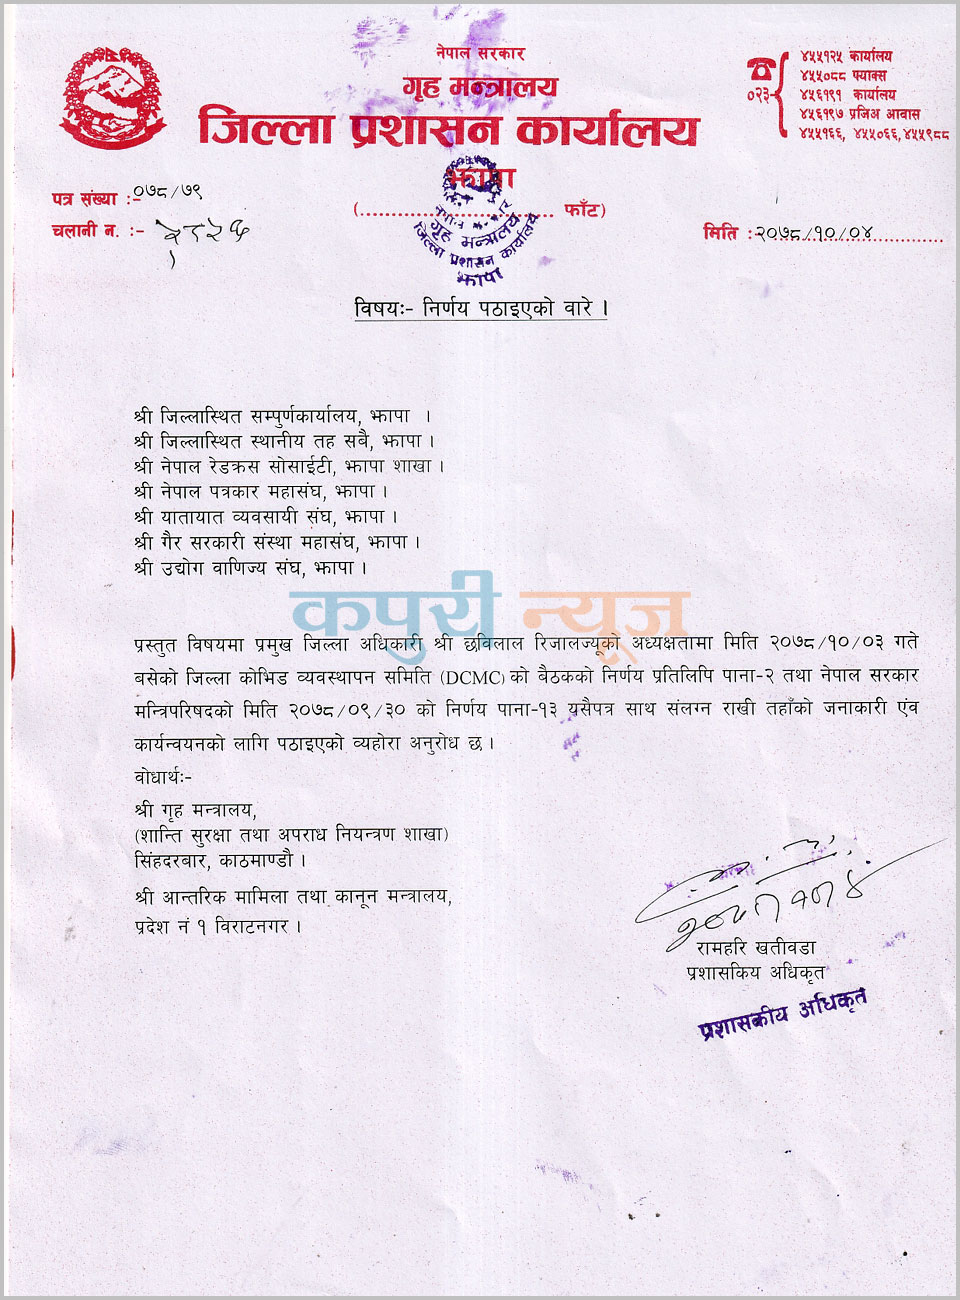 नेपाल सरकार
गृह मन्त्रालय
जिल्ला प्रशासन कार्यालय
झापा
(.................................. फाँट)
०२३-
४५५१२५ कार्यालय
४५५०८८ फ्याक्स
४५६१९१ कार्यालय
४५६१९७ प्रजिअ आवास
४५५१६६, ४५५०६६,४५५९८८
पत्र संख्या :- ०७८/७९
चलानी न. :-
मिति : २०७८/१०/०४
नेपाल
गृह मन्त्रालय
जिल्ला प्रशासन कार्यालय
झापा
विषयः- निर्णय पठाइएको वारे ।
श्री जिल्लास्थित सम्पुर्णकार्यालय, झापा ।
श्री जिल्लास्थित स्थानीय तह सबै, झापा ।
श्री नेपाल रेडक्रस सोसाईटी, झापा शाखा ।
श्री नेपाल पत्रकार महासंघ, झापा ।
श्री यातायात व्यवसायी संघ, झापा ।
श्री गैर सरकारी संस्था महासंघ, झापा ।
श्री उद्योग वाणिज्य संघ, झापा ।
कपुरी न्यूज
प्रस्तुत विषयमा प्रमुख जिल्ला अधिकारी श्री छविलाल रिजालज्यूको अध्यक्षतामा मिति २०७८/१०/०३ गते
बसेको जिल्ला कोभिड व्यवस्थापन समिति (DCMC) को बैठकको निर्णय प्रतिलिपि पाना-२ तथा नेपाल सरकार
मन्त्रिपरिषदको मिति २०७८/०९/३० को निर्णय पाना-१३ यसैपत्र साथ संलग्न राखी तहाँको जनाकारी एंव
कार्यन्वयनको लागि पठाइएको व्यहोरा अनुरोध छ ।
वोधार्थः-
श्री गृह मन्त्रालय,
(शान्ति सुरक्षा तथा अपराध नियन्त्रण शाखा)
सिंहदरबार, काठमाण्डौ ।
श्री आन्तरिक मामिला तथा कानून मन्त्रालय,
प्रदेश नं १ विराटनगर ।
रामहरि खतीवडा
प्रशासकिय अधिकृत
प्रशासकीय अधिकृत